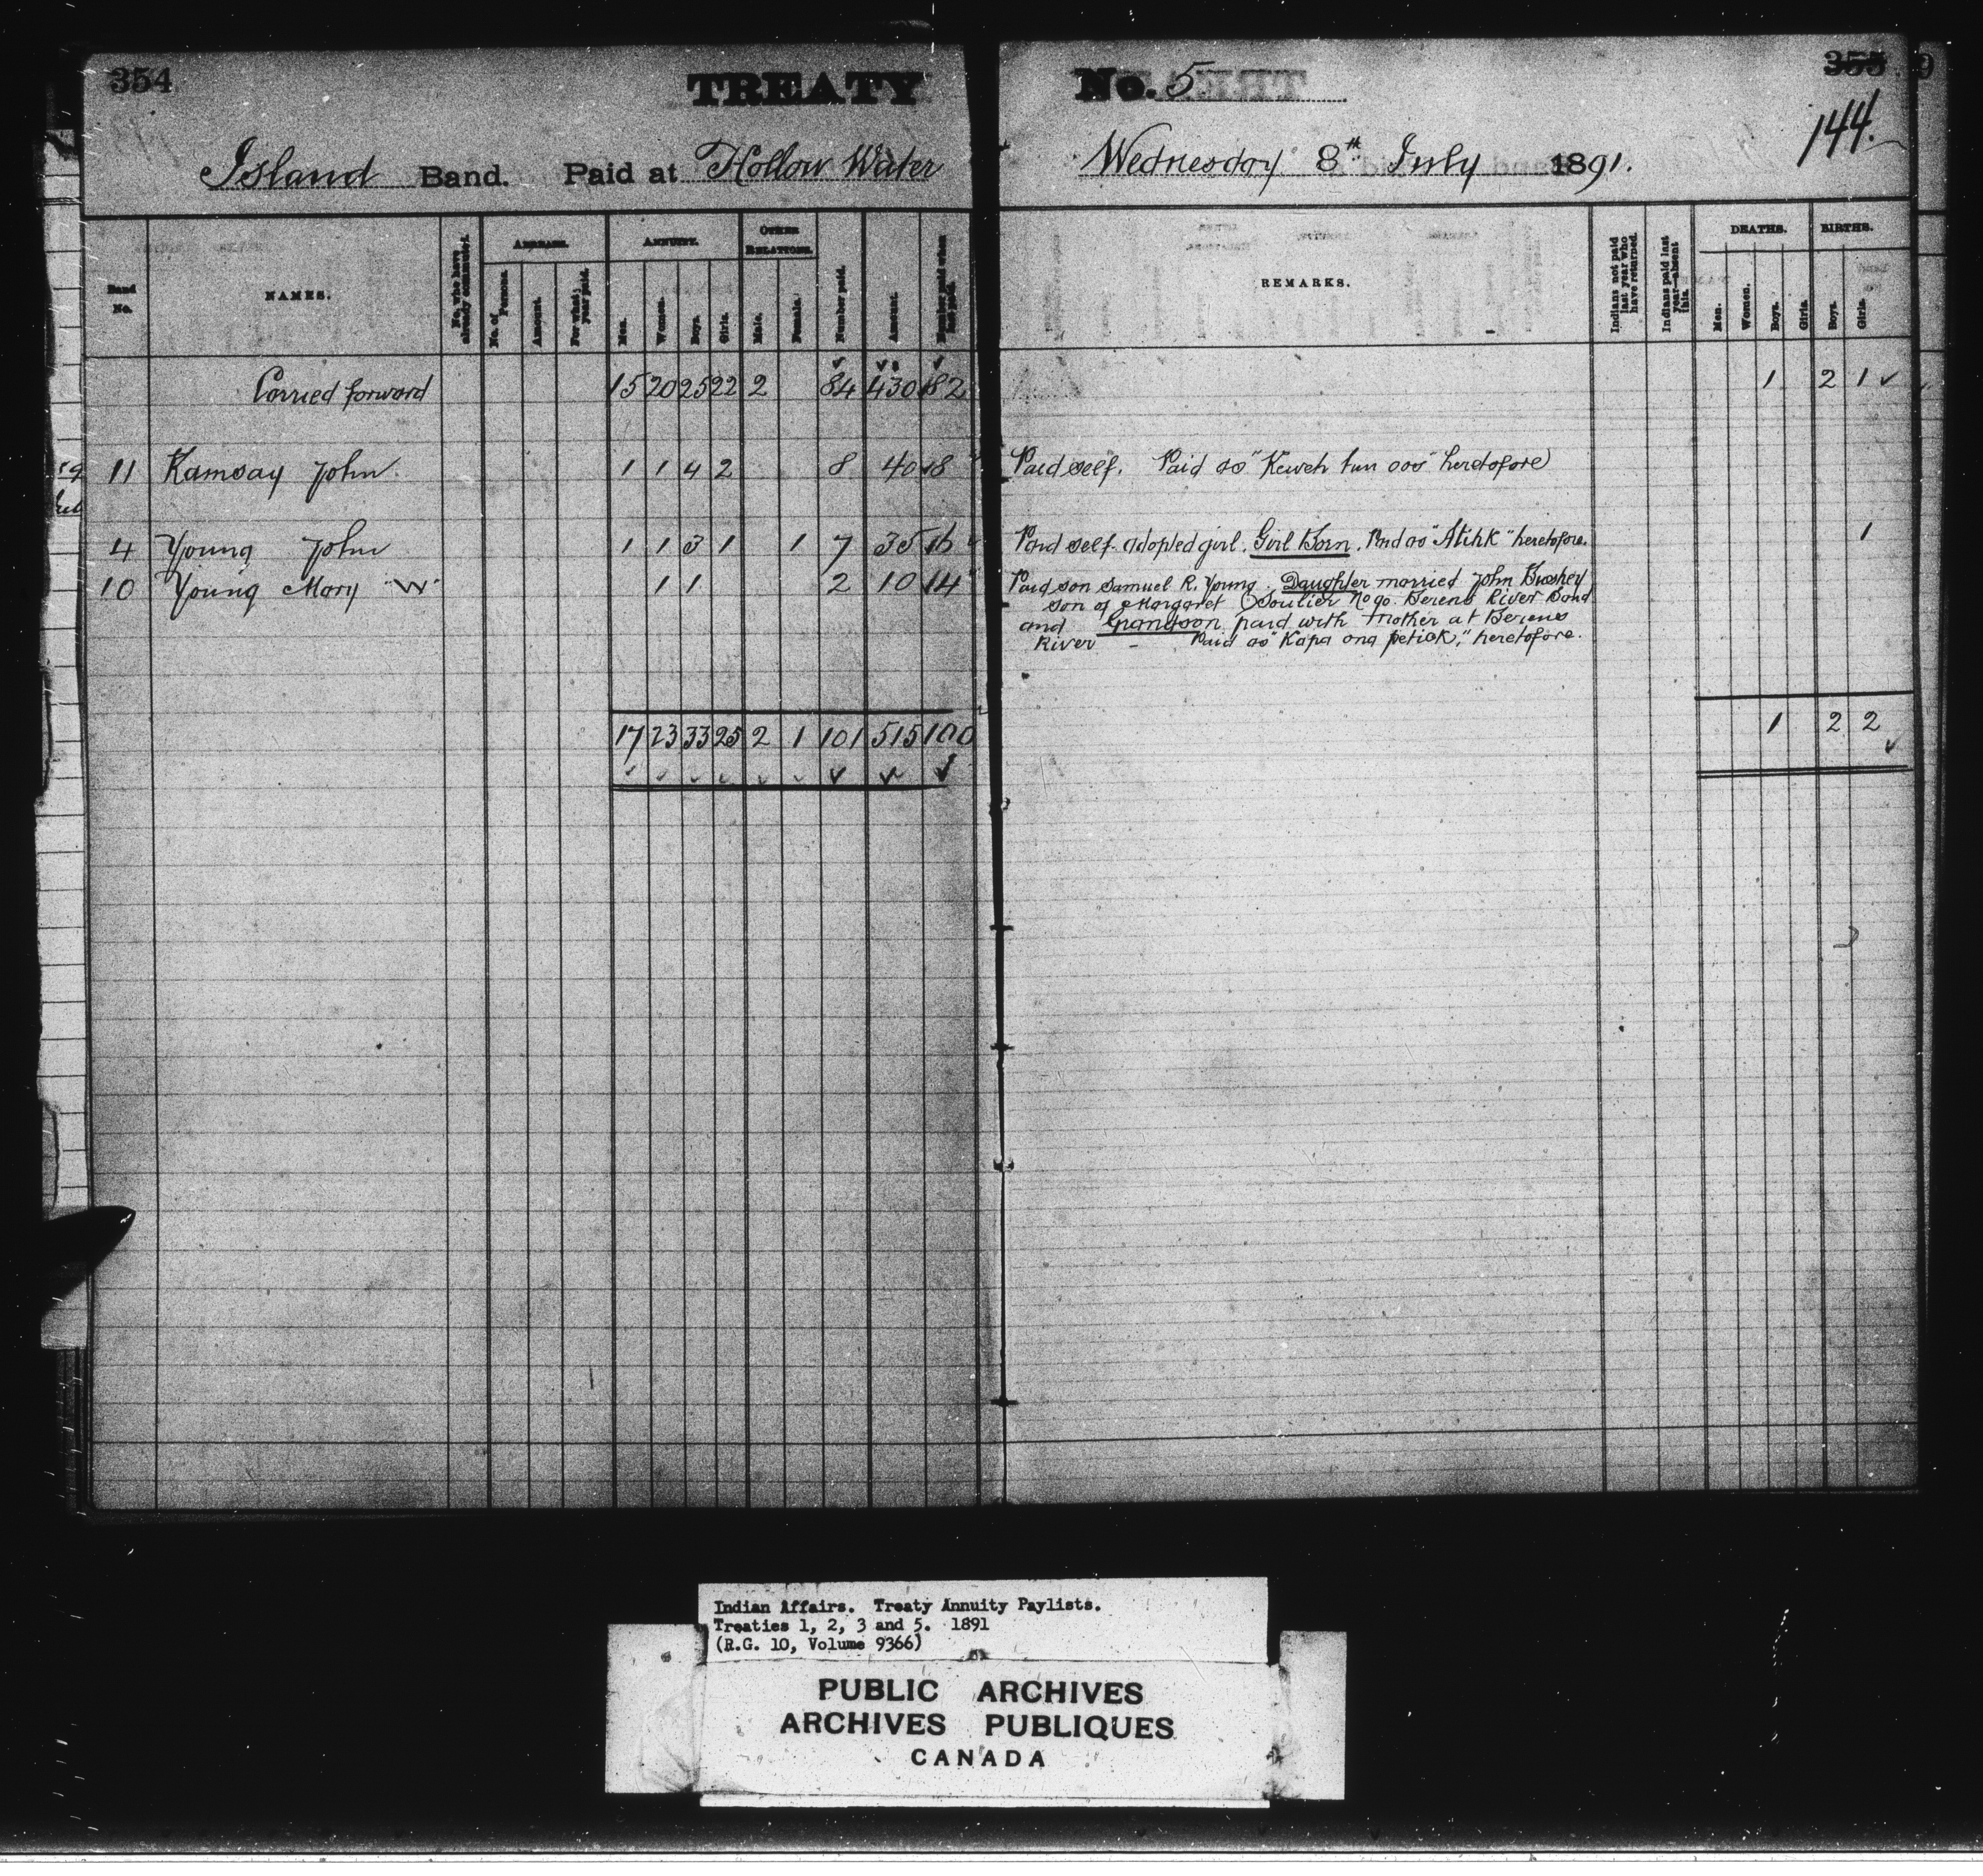 354
TREATY
No. 5
355
144.
Island Band. Paid at Hollow Water
Wednesday 8th July 1891.
Band No.
NAMES.
No. who have already commuted.
ARREARS.
No. of Persons.
Amount.
For what year paid.
ANNUITY.
Men.
Women.
Boys.
Girls.
OTHER RELATIONS.
Male.
Female.
Number paid.
Amount.
Number paid when last paid.
REMARKS.
Indians not paid last year who have returned.
Indians paid last year—absent this.
DEATHS.
Men.
Women.
Boys.
Girls.
BIRTHS.
Boys.
Girls.
Carried forward 15 20 25 22 2 84 430 82 1 2 1
11 Ramsay John 1 1 4 2 8 40 8 Paid self. Paid as "Keweh tun oos" heretofore
4 Young John 1 1 3 1 1 7 35 6 Paid self. Adopted girl. Girl Born. Paid as "Atihk" heretofore. 1
10 Young Mary "W" 1 1 2 10 4 Paid son Samuel R. Young. Daughter married John
son of Margaret Soulier No 90. Berens River Band
and Grandson paid with mother at Berens
River - Paid as "Kapa ona petick," heretofore.
17 23 33 25 2 1 101 515 100 1 2 2
Indian Affairs. Treaty Annuity Paylists.
Treaties 1, 2, 3 and 5. 1891
(R.G. 10, Volume 9366)
PUBLIC ARCHIVES
ARCHIVES PUBLIQUES
CANADA